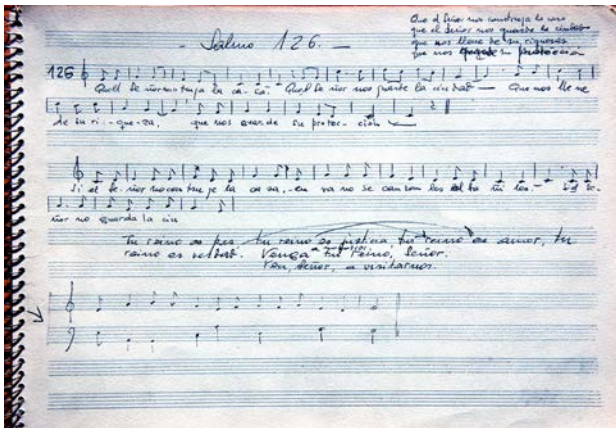 - Salmo 126. -
Que el Señor nos construya la casa
que el Señor nos guarde la ciudad
que nos llene de su riqueza
que nos su protección
126
Que el Se ñor nos truya la ca-sa- Que el Se ñor nos guarde la ciudad — Que nos lle ne
de su ri-que-za, que nos guarde su protec-ción
Si el Se-ñor no construye la casa, - en va no se cansan los al ba ñi les. - Si el Se-
ñor no guarda la ciu
Tu reino es paz, tu reino es justicia, tu reino es amor, tu
reino es verdad. Venga a nosotros tu reino, Señor.
Ven, Señor, a visitarnos.